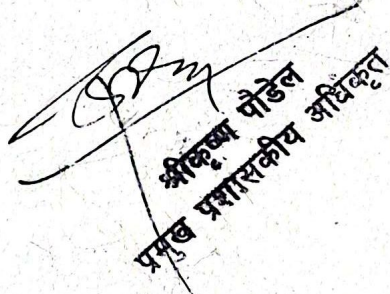 श्रीकृष्ण पौडेल
प्रमुख प्रशासकीय अधिकृत